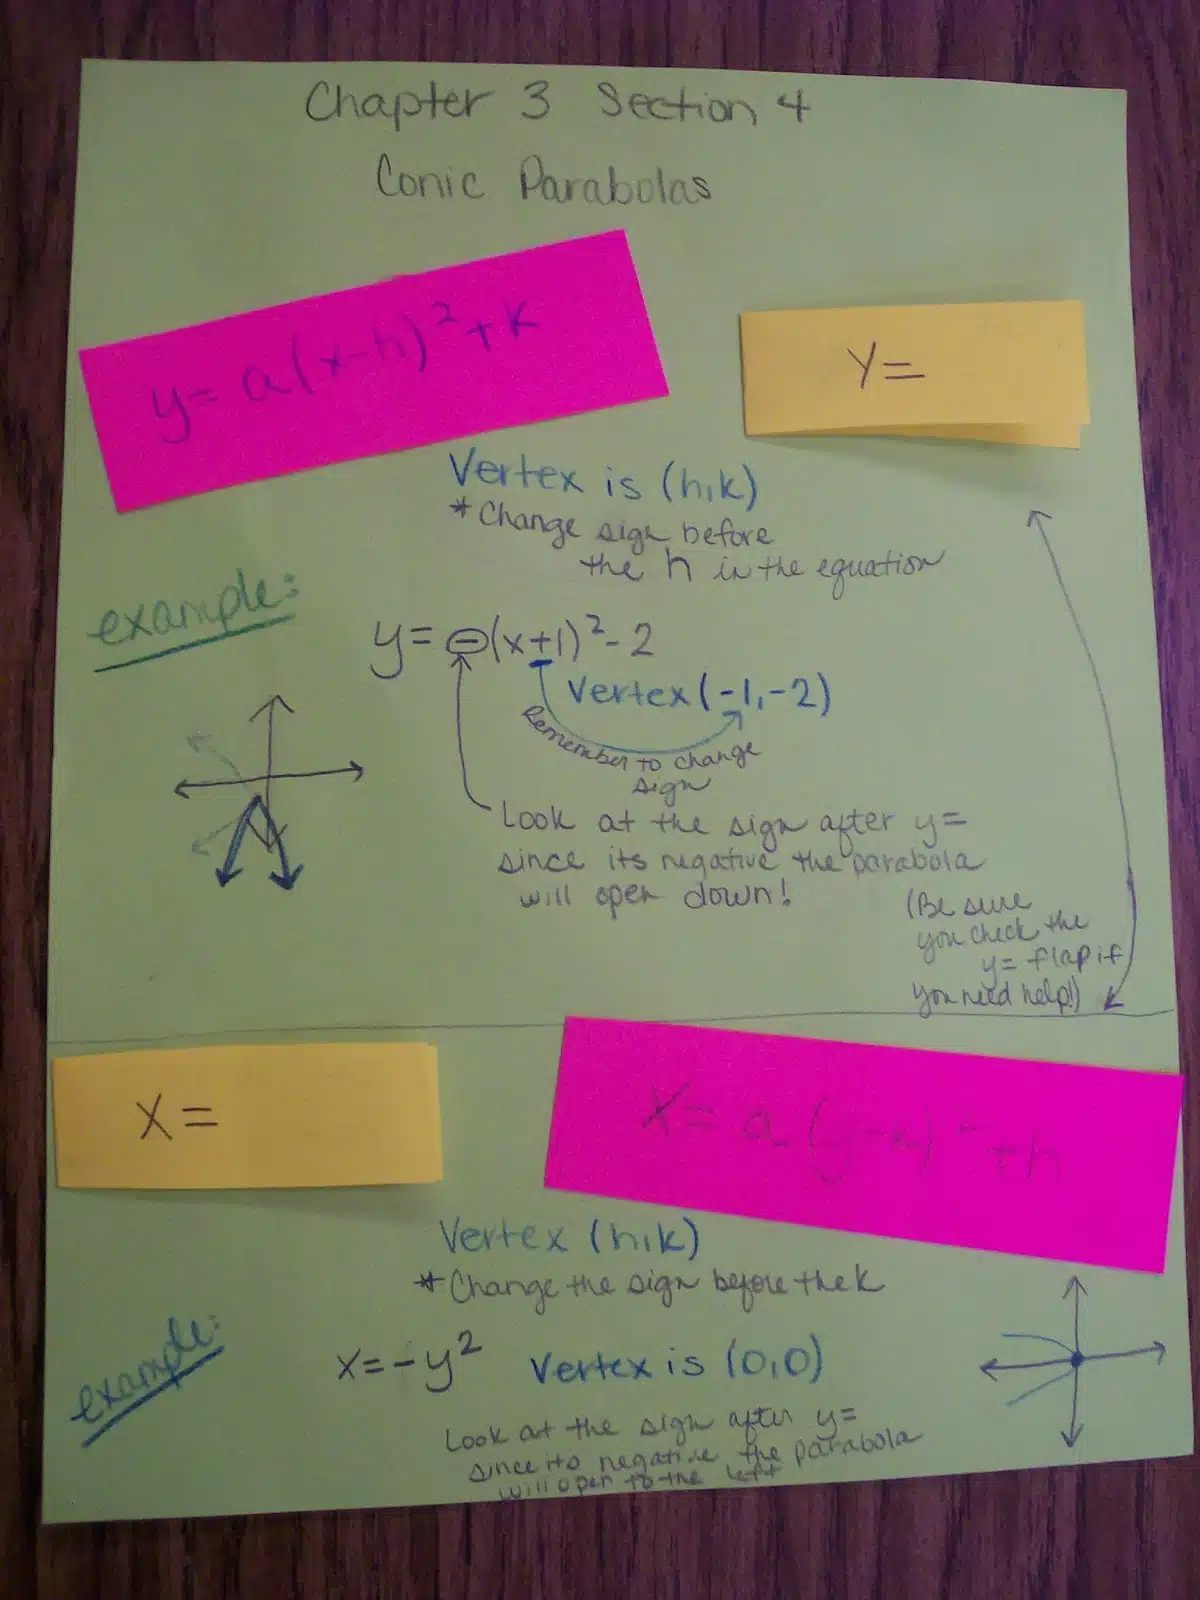 Chapter 3 Section 4
Conic Parabolas
y= a(x-h)²+k
Y=
Vertex is (h,k)
* Change sign before
the h in the equation
example:
y= -(x+1)²-2
Vertex (-1,-2)
Remember to change
sign
Look at the sign after y=
since its negative the parabola
will open down!
(Be sure
you check the
y= flap if
you need help!)
X=
X= a(y-k)²+h
Vertex (h,k)
* Change the sign before the k
example:
x=-y² Vertex is (0,0)
Look at the sign after y=
since its negative the parabola
will open to the left